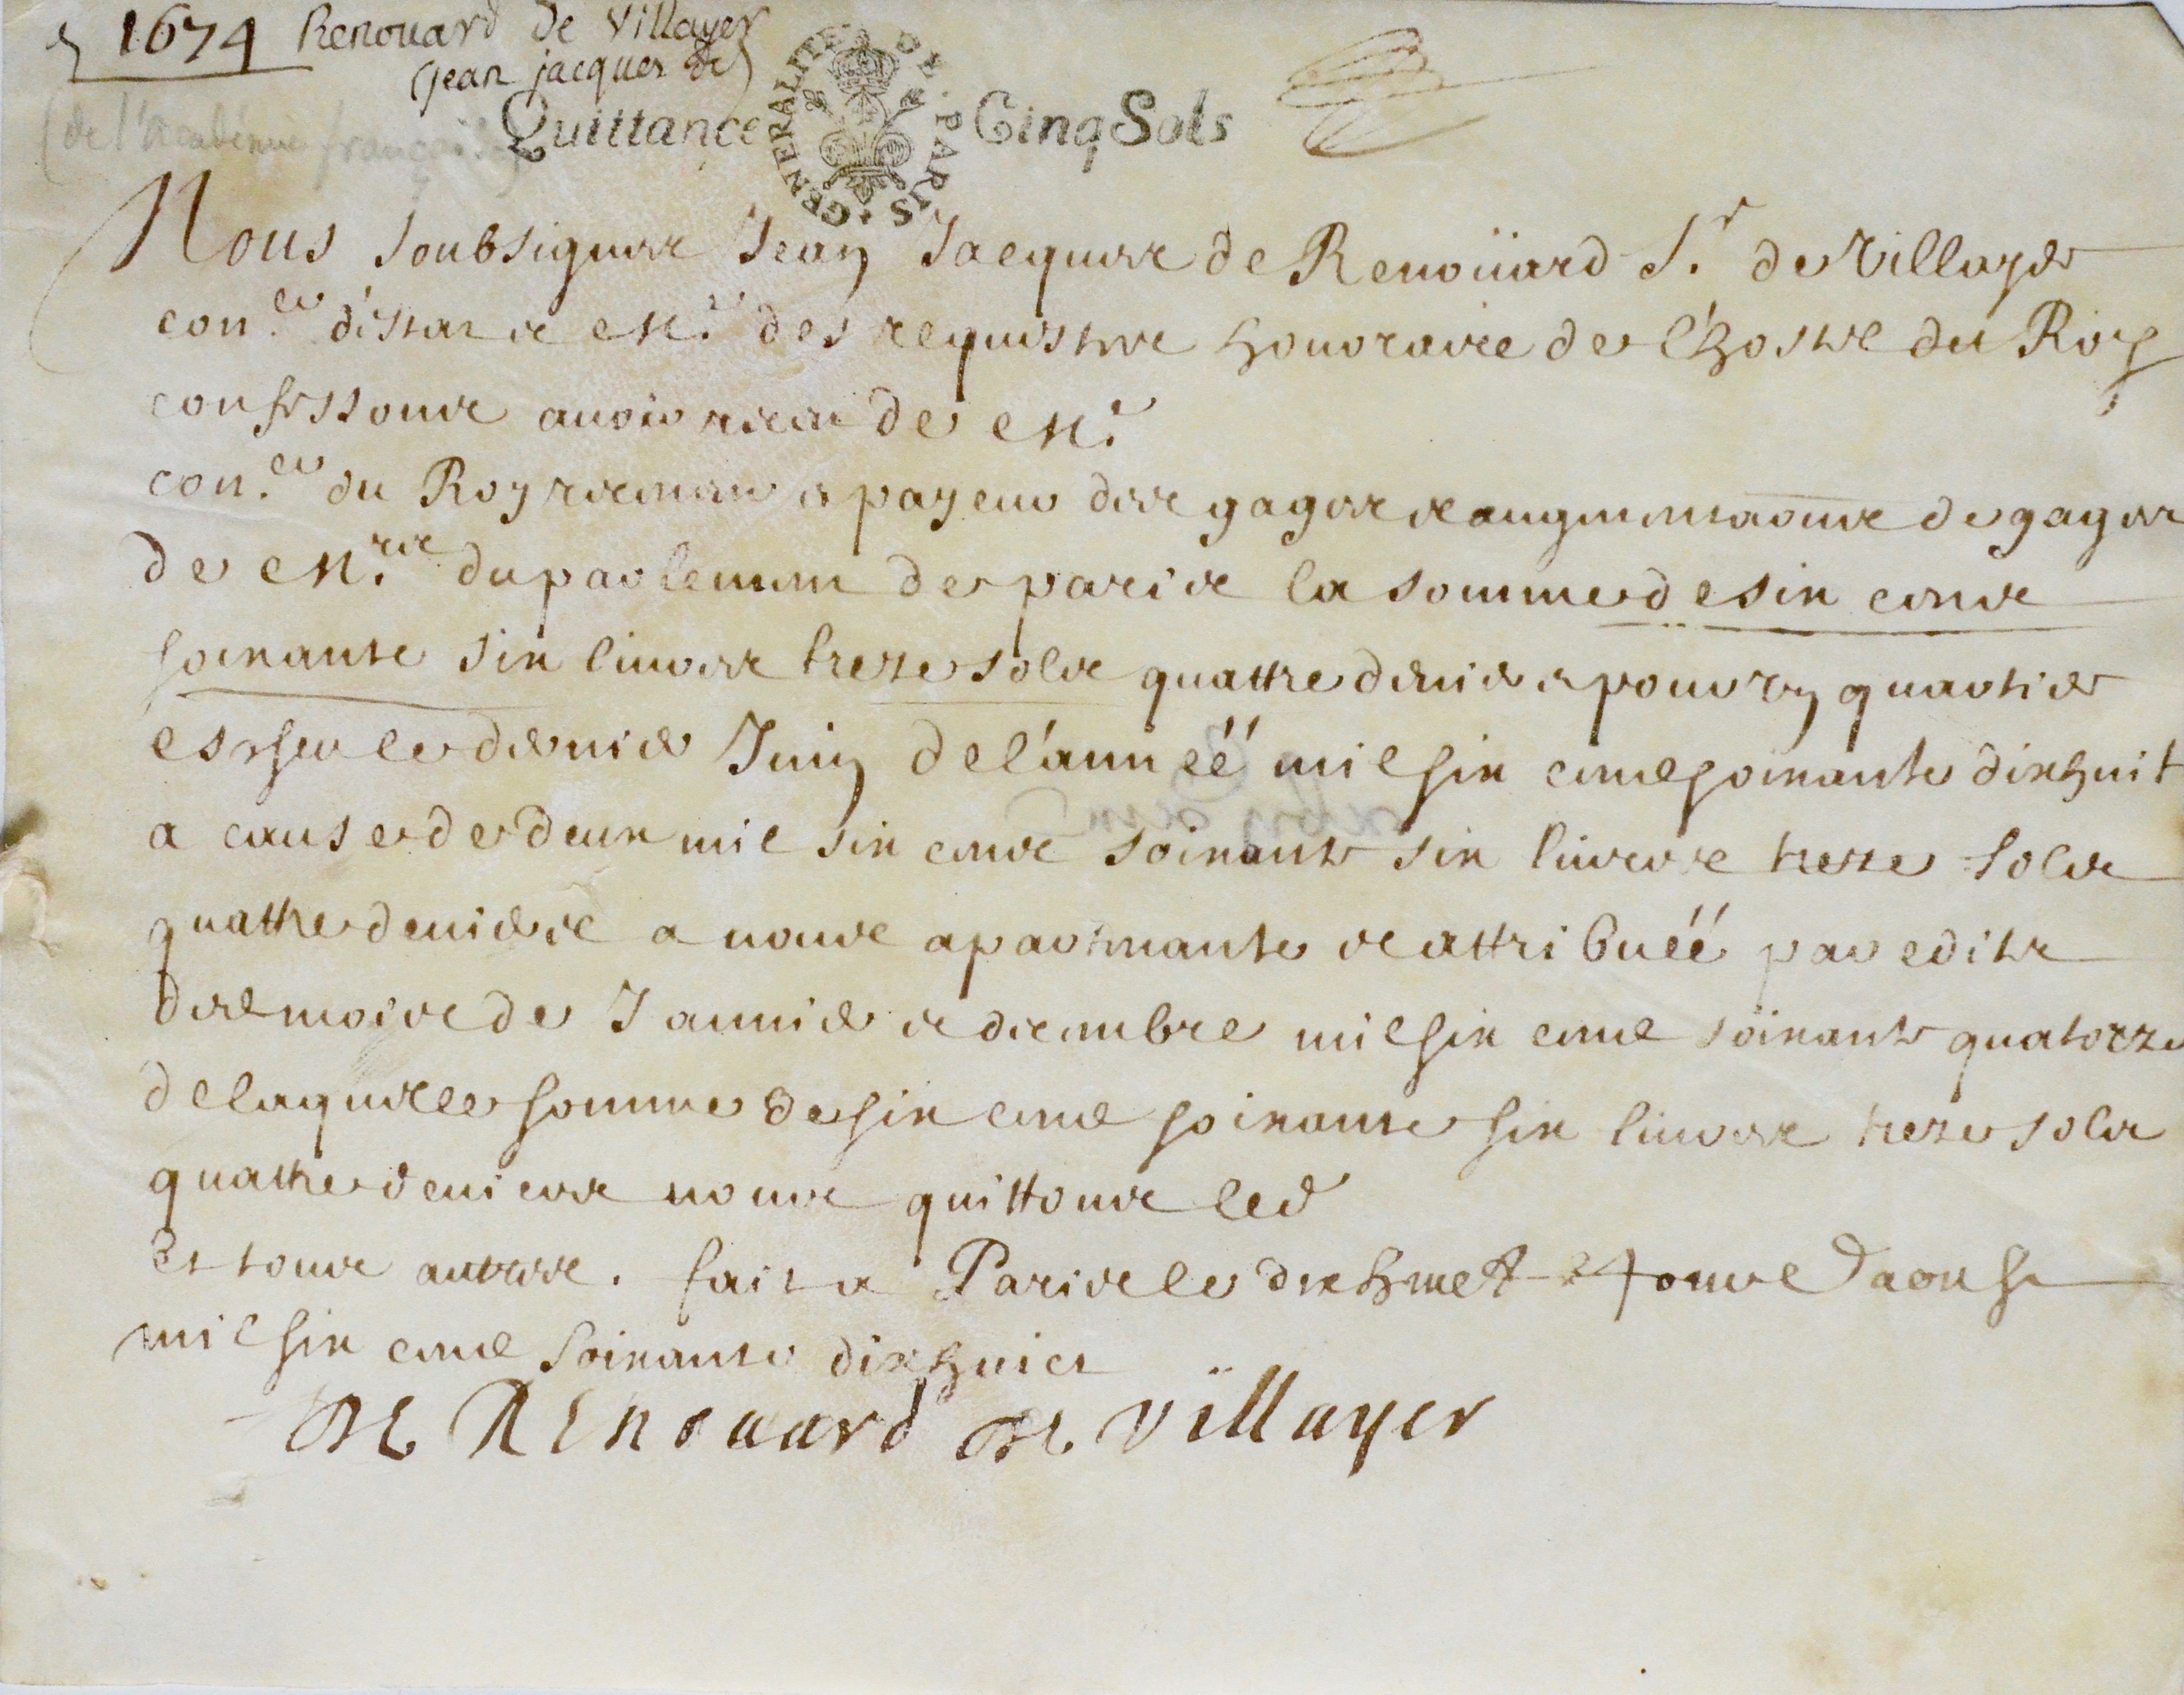 1674 Renouard de Villayer
(jean jacques de)
(de l'academie française)
Quittance GENERALITE DE PARIS Cinq Sols
Nous soubsignez Jean Jacques de Renoüard Sr. de Villayer
coner. d'estat et Me. des requestes honoraire de l'hostel du Roy
confessons avoir receu de Me.
coner. du Roy receveur et payeur des gages et augmentaons de gages
de Mrs. du parlement de paris la somme de six cens
soixante six livres treze solz quattre deniers pour un quartier
escheu le dernier Juin de l'année mil six cens soixante dixhuit
a cause de deux mil six cens soixante six livres treze solz
quattre deniers a nous apartenante et attribuéé par edits
des mois de Janvier et decembre mil six cens soixante quatorze
de laquelle somme de six cens soixante six livres treze solz
quattre deniers nous quittons led
Et tous autres. fait a Paris le dixhuict jour d'aoust
mil six cens soixante dixhuict
De Renouard De Villayer